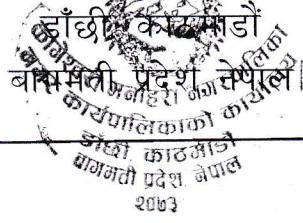 डाँछी काठमाडौं
बागमती प्रदेश नेपाल
कागेश्वरी मनोहरा नगरपालिका
कार्यपालिकाको कार्यालय
डाँछी, काठमाडौं
बागमती प्रदेश, नेपाल
२०७३